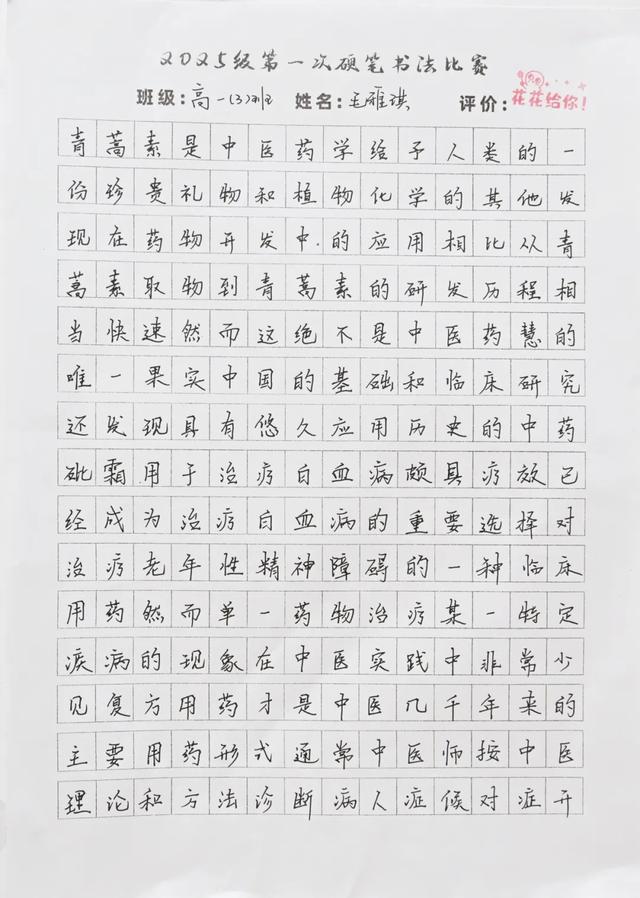 2025级第一次硬笔书法比赛
班级:高一(3)班 姓名:王雁琪 评价:花花给你!
青蒿素是中医药学给予人类的一
份珍贵礼物和植物化学的其他发
现在药物开发中.的应用相比从青
蒿素取物到青蒿素的研发历程相
当快速然而这绝不是中医药慧的
唯一果实中国的基础和临床研究
还发现具有悠久应用历史的中药
砒霜用于治疗白血病颇具疗效已
经成为治疗白血病的重要选择对
治疗老年性精神障碍的一种临床
用药然而单一药物治疗某一特定
疾病的现象在中医实践中非常少
见复方用药才是中医几千年来的
主要用药形式通常中医师按中医
理论和方法诊断病人症候对症开